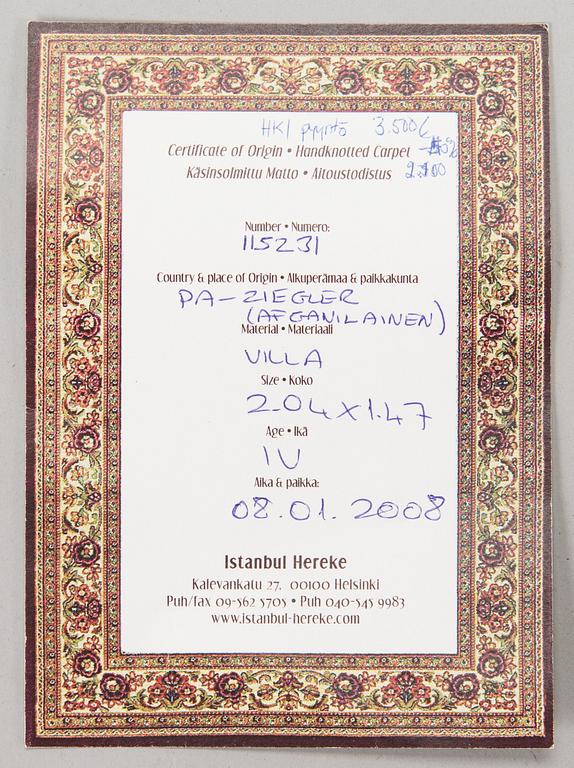 HKI pyyntö 3.500€
Certificate of Origin • Handknotted Carpet
Käsinsolmittu Matto • Aitoustodistus
Number • Numero:
115231
Country & place of Origin • Alkuperämaa & paikkakunta
PA-ZIEGLER
(AFGANILAINEN)
Material • Materiaali
VILLA
Size • Koko
2.04x1.47
Age • Ikä
IU
Aika & paikka:
08.01.2008
Istanbul Hereke
Kalevankatu 27, 00100 Helsinki
Puh/fax 09-562 5705 • Puh 040-545 9983
www.istanbul-hereke.com